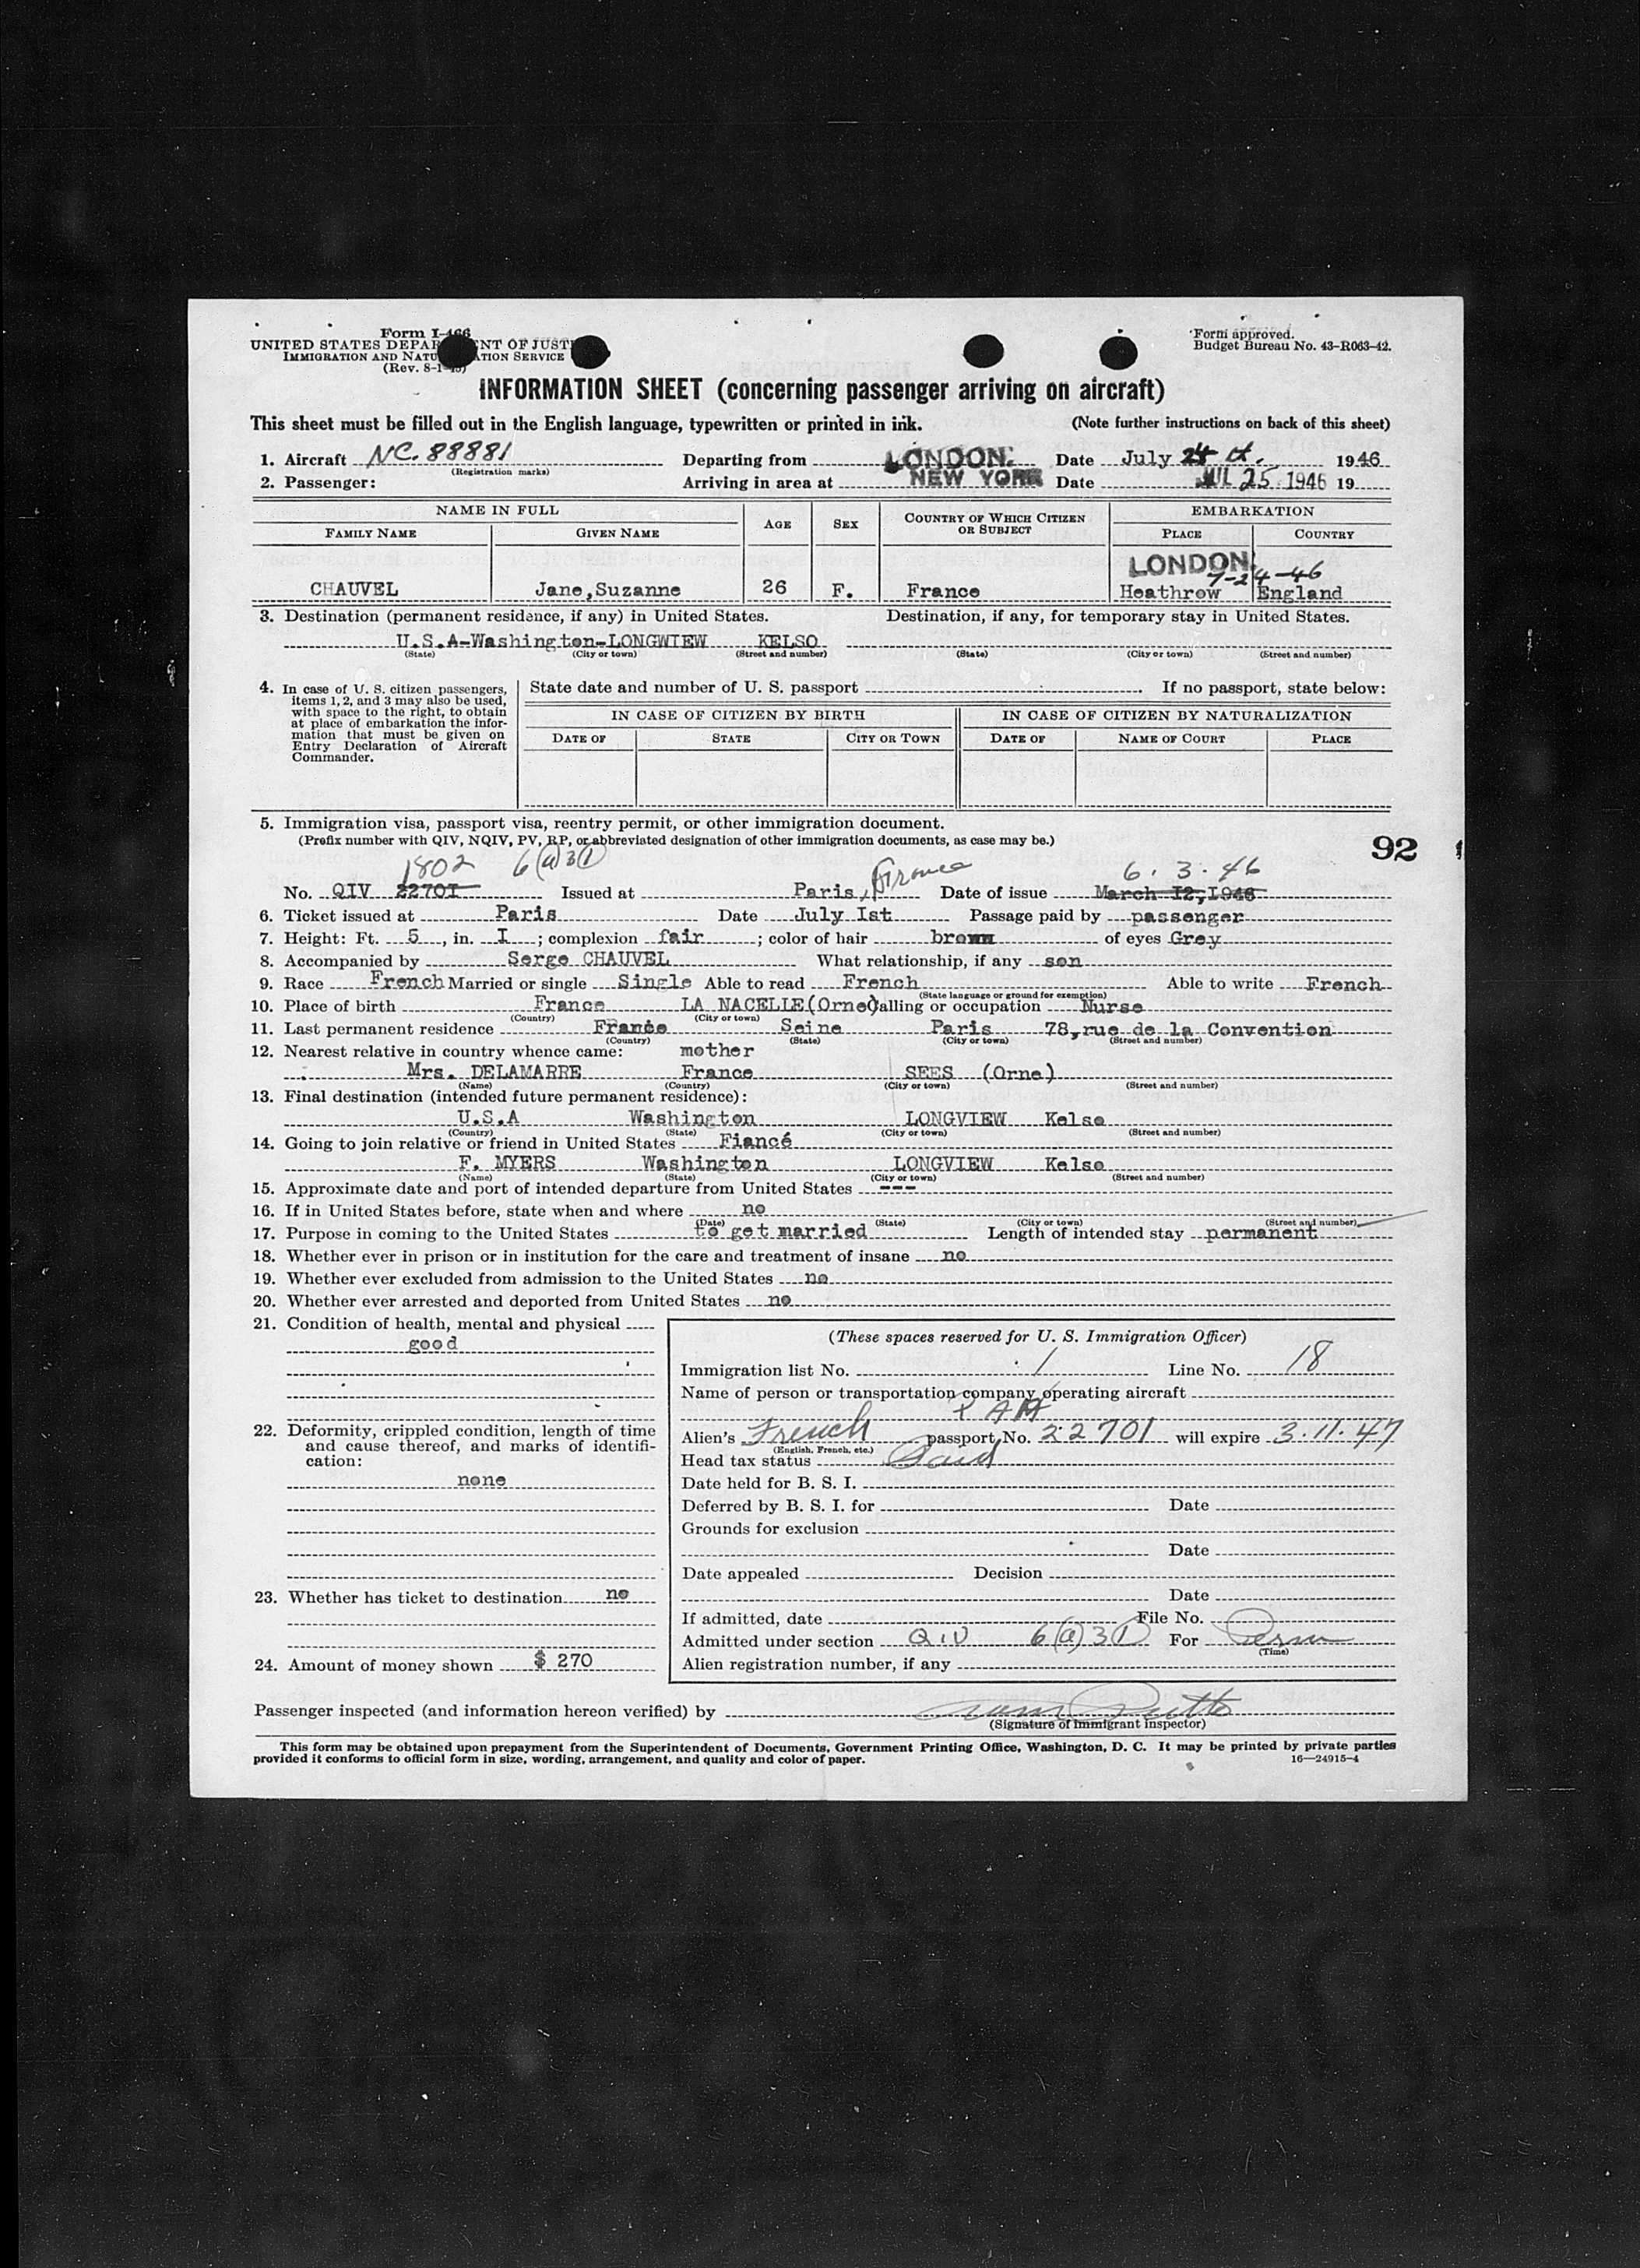 Form I-466
UNITED STATES DEPAR NT OF JUST
IMMIGRATION AND NATU ATION SERVICE
(Rev. 8-1-
Form approved.
Budget Bureau No. 43-R063-42.
INFORMATION SHEET (concerning passenger arriving on aircraft)
This sheet must be filled out in the English language, typewritten or printed in ink. (Note further instructions on back of this sheet)
1. Aircraft NC. 88881 Departing from LONDON. Date July 24 1946
(Registration marks)
2. Passenger: Arriving in area at NEW YORK Date JUL 25 1946 19
NAME IN FULL AGE SEX COUNTRY OF WHICH CITIZEN OR SUBJECT EMBARKATION
FAMILY NAME GIVEN NAME PLACE COUNTRY
LONDON
7-24-46
CHAUVEL Jane,Suzanne 26 F. France Heathrow England
3. Destination (permanent residence, if any) in United States. Destination, if any, for temporary stay in United States.
U.S.A-Washington-LONGWIEW KELSO
(State) (City or town) (Street and number) (State) (City or town) (Street and number)
4. In case of U. S. citizen passengers, items 1, 2, and 3 may also be used, with space to the right, to obtain at place of embarkation the information that must be given on Entry Declaration of Aircraft Commander.
State date and number of U. S. passport . If no passport, state below:
IN CASE OF CITIZEN BY BIRTH IN CASE OF CITIZEN BY NATURALIZATION
DATE OF STATE CITY OR TOWN DATE OF NAME OF COURT PLACE
5. Immigration visa, passport visa, reentry permit, or other immigration document.
(Prefix number with QIV, NQIV, PV, RP, or abbreviated designation of other immigration documents, as case may be.)
92
1802 6(a)3(1) France 6. 3. 46
No. QIV 22701 Issued at Paris, Date of issue March 12, 1946
6. Ticket issued at Paris Date July Ist Passage paid by passenger
7. Height: Ft. 5, in. I; complexion fair; color of hair brown of eyes Grey
8. Accompanied by Serge CHAUVEL What relationship, if any son
9. Race French Married or single Single Able to read French Able to write French
(State language or ground for exemption)
10. Place of birth France LA NACELLE(Orne) Calling or occupation Nurse
(Country) (City or town)
11. Last permanent residence France Seine Paris 78,rue de la Convention
(Country) (State) (City or town) (Street and number)
12. Nearest relative in country whence came: mother
Mrs. DELAMARRE France SEES (Orne)
(Name) (Country) (City or town) (Street and number)
13. Final destination (intended future permanent residence):
U.S.A Washington LONGVIEW Kelso
(Country) (State) (City or town) (Street and number)
14. Going to join relative or friend in United States Fiancé
F. MYERS Washington LONGVIEW Kelso
(Name) (State) (City or town) (Street and number)
15. Approximate date and port of intended departure from United States ---
16. If in United States before, state when and where no
(Date) (State) (City or town) (Street and number)
17. Purpose in coming to the United States to get married Length of intended stay permanent
18. Whether ever in prison or in institution for the care and treatment of insane no
19. Whether ever excluded from admission to the United States no
20. Whether ever arrested and deported from United States no
21. Condition of health, mental and physical
good
22. Deformity, crippled condition, length of time and cause thereof, and marks of identification:
none
23. Whether has ticket to destination no
24. Amount of money shown $ 270
(These spaces reserved for U. S. Immigration Officer)
Immigration list No. 1 Line No. 18
Name of person or transportation company operating aircraft
PAA
Alien's French passport No. 22701 will expire 3.11.47
(English, French, etc.)
Head tax status Paid
Date held for B. S. I.
Deferred by B. S. I. for Date
Grounds for exclusion
Date
Date appealed Decision
Date
If admitted, date File No.
Admitted under section QIV 6(a)3(1) For Perm
(Time)
Alien registration number, if any
Passenger inspected (and information hereon verified) by
(Signature of Immigrant Inspector)
This form may be obtained upon prepayment from the Superintendent of Documents, Government Printing Office, Washington, D. C. It may be printed by private parties
provided it conforms to official form in size, wording, arrangement, and quality and color of paper. 16—24915-4